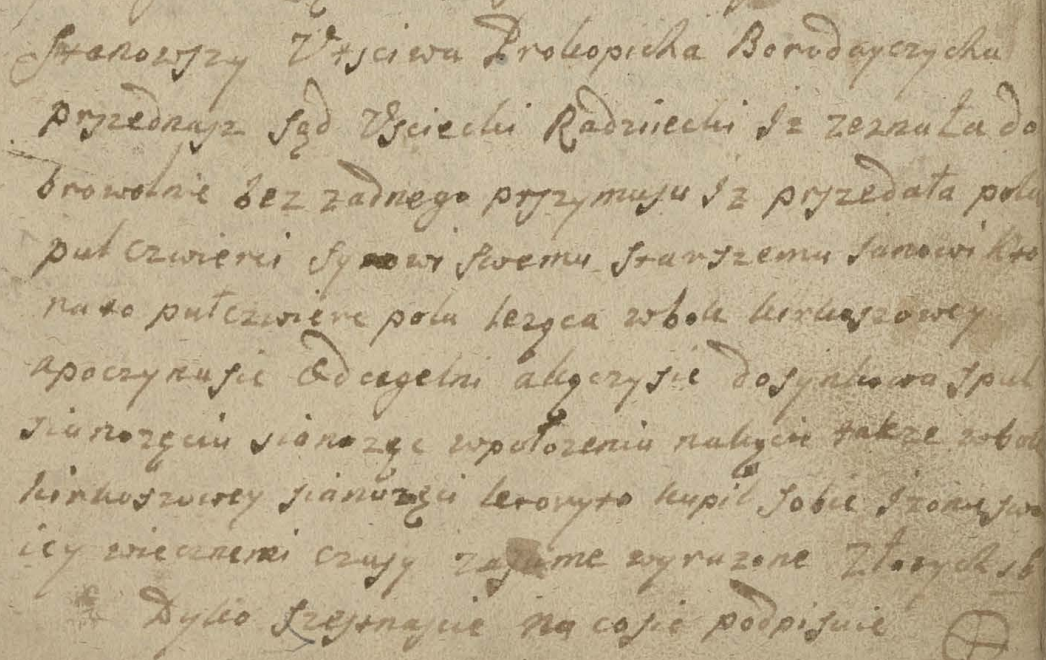 Stanowszy Vtsciwa Prokopicha Borodayczycha
przednasz sąd Vsciecki Radziiecki Iz zeznała do
browolnie bez zadnego przymusu Iz przedała pola
puł czwierci synowi swemu starszemu Janowi kto
na to pułczwierc pola lezęca wbok kirkoszowey
apoczynasie Odcegelni akączysie dosynkowa spuł
sianozęciu sianozęc wpołozeniu nakącie takze wbok
kirkoszowey sianozęci ktoryto kupił sobie Izonięswo
iey wiecznemi czasy zasume wyrazone Złotych 16
Dyko szesnascie na cosie podpisuie